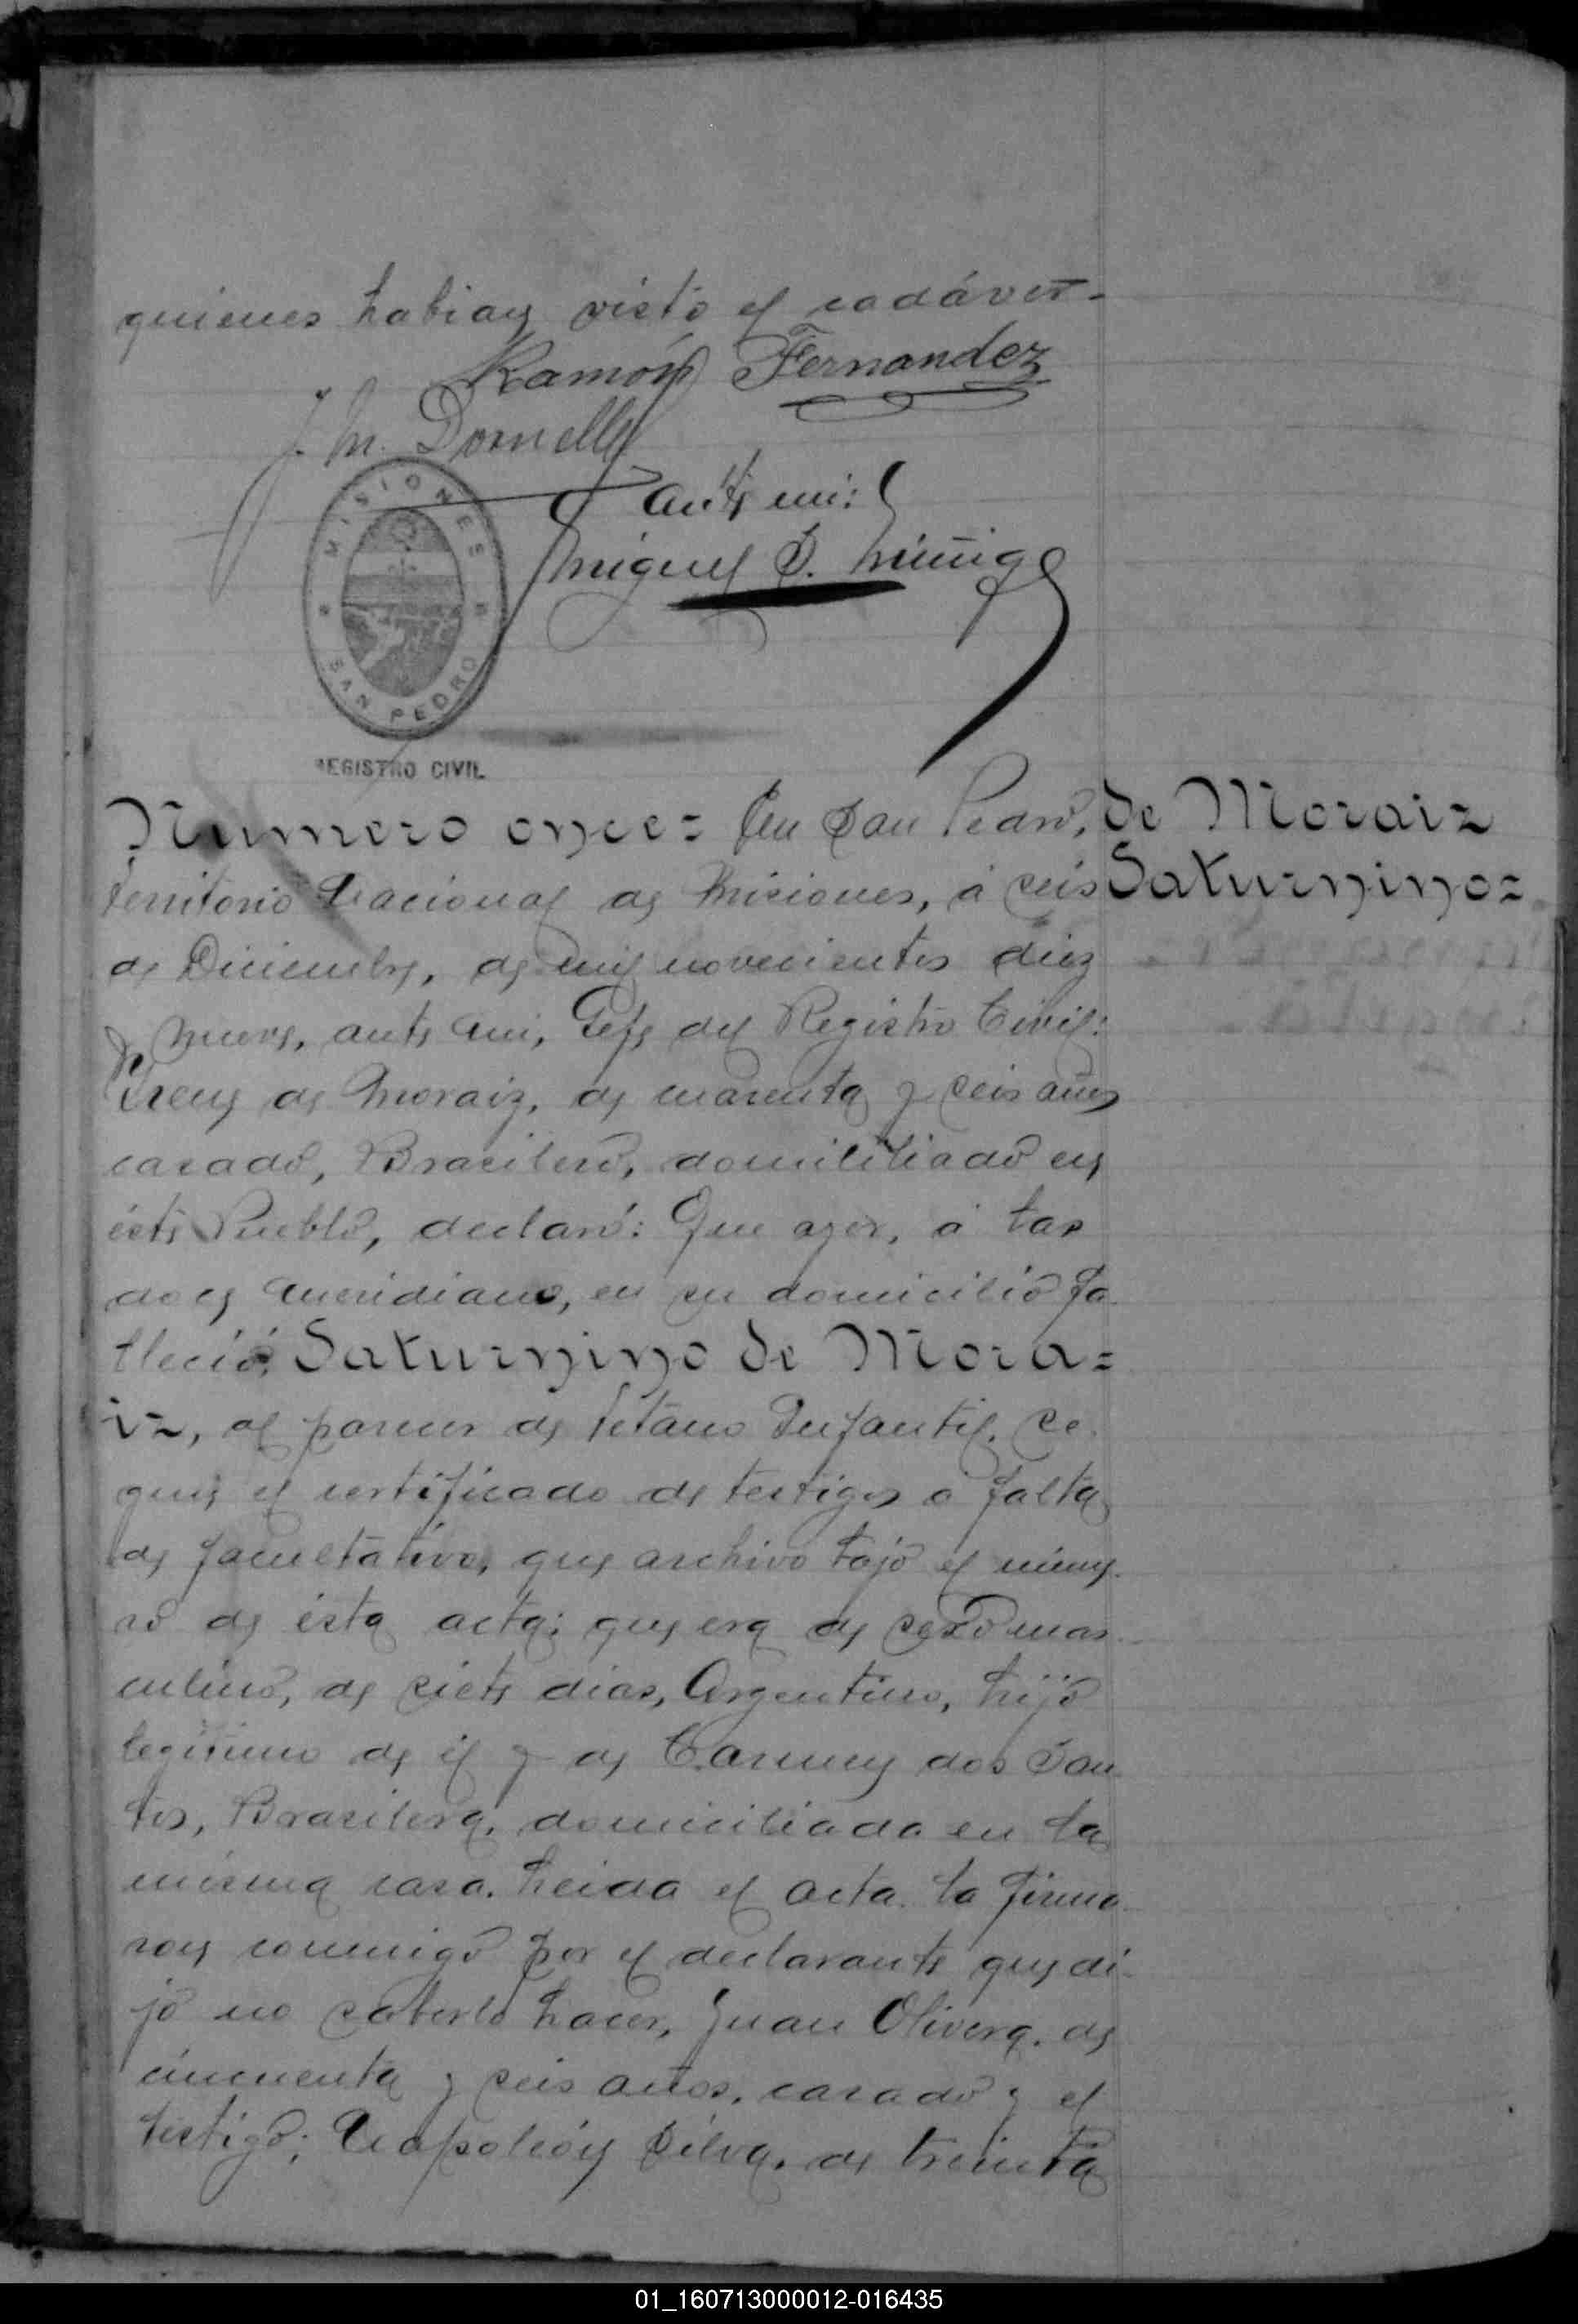 quienes habian visto el cadáver-
Ramón Fernandez
J. M. Donnelly
Ante mi:
Miguel S. Núñiz
MISIONES
SAN PEDRO
REGISTRO CIVIL
Numero once= En San Pedro, de Moraiz
Territorio Nacional de Misiones, á seis Saturnino=
de Diciembre, de mil novecientos diez
y nueve, ante mi, Gefe del Registro Civil:
de Moraiz, de cuarenta y seis años
casado, Brasilero, domililiado en
éste Pueblo, declaró: Que ayer, á las
doce meridiano, en su domicilio fa-
lleció; Saturnino de Mora=
iz, al parecer de Tétano Infantil. Se-
gun el certificado de testigos á falta
de facultativo, que archivo bajo el núme-
ro de ésta acta; que era de sexo mas-
culino, de siete dias, Argentino, hijo
legítimo de él y de Carmen dos San-
tos, Brasilera, domiciliada en la
misma casa. Leida el acta. la firma-
ron conmigo por el declarante que di-
jo no saberlo hacer, Juan Olivera. de
cincuenta y seis años, casado y el
testigo; Napoleón Silva. de treinta